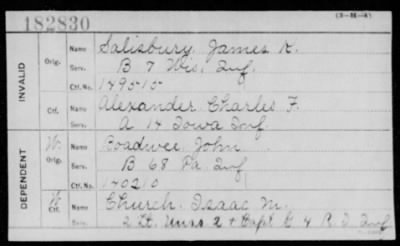 182830
INVALID
Orig.
Name Salisbury, James K.
Serv. B 7 Wis. Inf.
Ctf. No. 149515
Ctf.
Name Alexander Charles F.
Serv. A 14 Iowa Inf
DEPENDENT
W. Orig.
Name Roadwee John
Serv. B 68 Pa Inf
Ctf. No. 140210
W Ctf.
Name Church, Isaac M.
Serv. 2 Lt. 2 + Capt. 4 R. I. Inf